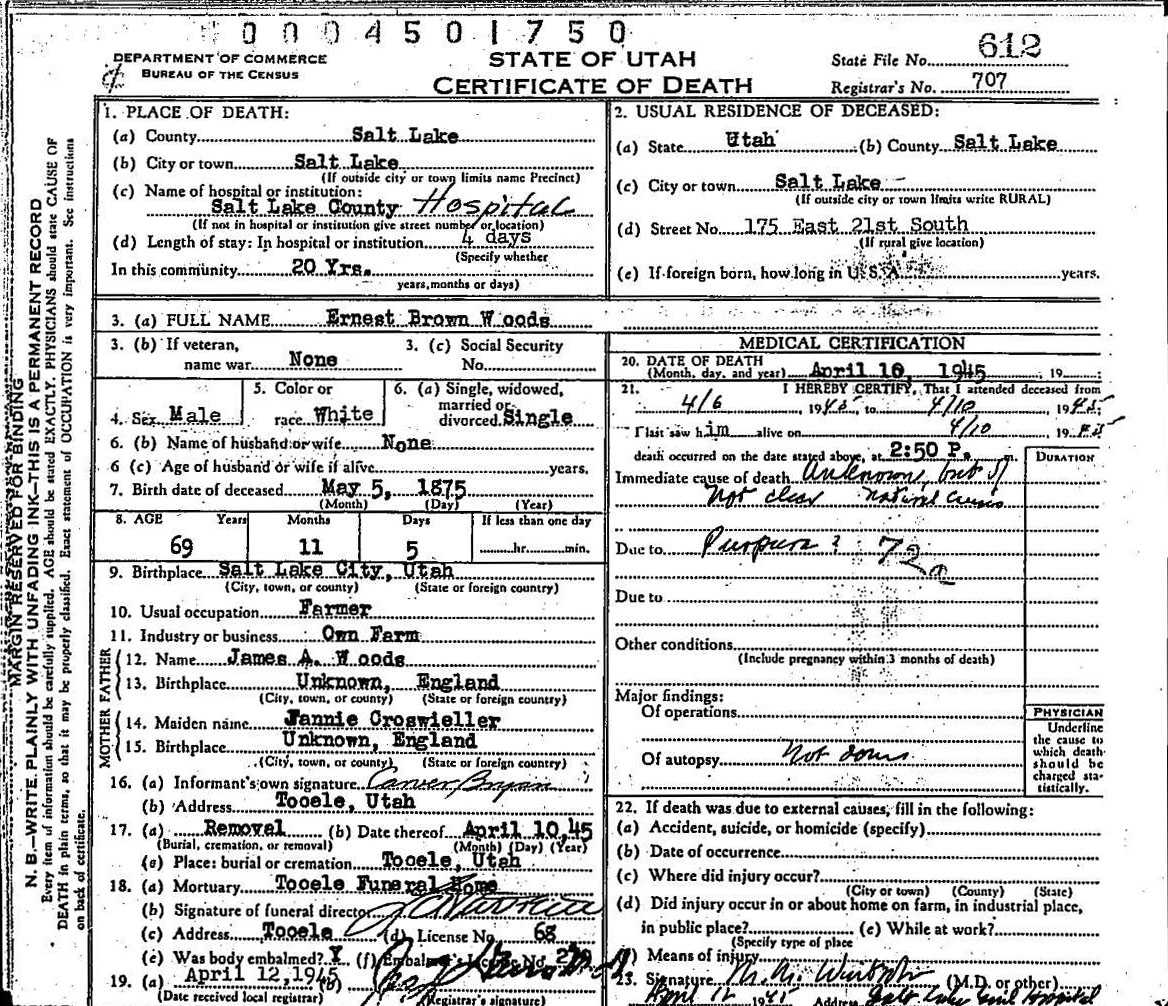 0004501750
DEPARTMENT OF COMMERCE
BUREAU OF THE CENSUS
STATE OF UTAH
CERTIFICATE OF DEATH
State File No. 612
Registrar's No. 707
MARGIN RESERVED FOR BINDING
N. B.—WRITE PLAINLY WITH UNFADING INK—THIS IS A PERMANENT RECORD
Every item of information should be carefully supplied. AGE should be stated EXACTLY. PHYSICIANS should state CAUSE OF
DEATH in plain terms, so that it may be properly classified. Exact statement of OCCUPATION is very important. See instructions
on back of certificate.
1. PLACE OF DEATH:
(a) County Salt Lake
(b) City or town Salt Lake
(If outside city or town limits name Precinct)
(c) Name of hospital or institution:
Salt Lake County Hospital
(If not in hospital or institution give street number or location)
(d) Length of stay: In hospital or institution 4 days
(Specify whether
In this community 20 Yrs.
years, months or days)
2. USUAL RESIDENCE OF DECEASED:
(a) State Utah (b) County Salt Lake
(c) City or town Salt Lake
(If outside city or town limits write RURAL)
(d) Street No. 175 East 21st South
(If rural give location)
(e) If foreign born, how long in U. S. A. years.
3. (a) FULL NAME Ernest Brown Woods
3. (b) If veteran,
name war None
3. (c) Social Security
No.
4. Sex Male
5. Color or
race White
6. (a) Single, widowed,
married or
divorced Single
6. (b) Name of husband or wife None
6 (c) Age of husband or wife if alive years.
7. Birth date of deceased May 5, 1875
(Month) (Day) (Year)
8. AGE Years Months Days If less than one day
69 11 5 hr. min.
9. Birthplace Salt Lake City, Utah
(City, town, or county) (State or foreign country)
10. Usual occupation Farmer
11. Industry or business Own Farm
FATHER
12. Name James A. Woods
13. Birthplace Unknown, England
(City, town, or county) (State or foreign country)
MOTHER
14. Maiden name Jannie Croswieller
15. Birthplace Unknown, England
(City, town, or county) (State or foreign country)
16. (a) Informant's own signature Carver Bryan
(b) Address Tooele, Utah
17. (a) Removal (b) Date thereof April 10, 45
(Burial, cremation, or removal) (Month) (Day) (Year)
(c) Place: burial or cremation Tooele, Utah
18. (a) Mortuary Tooele Funeral Home
(b) Signature of funeral director
(c) Address Tooele (d) License No. 68
(e) Was body embalmed? X (f) Embalmer's License No.
19. (a) April 12, 1945 (b)
(Date received local registrar) (Registrar's signature)
MEDICAL CERTIFICATION
20. DATE OF DEATH
(Month, day, and year) April 10, 1945, 19
21. I HEREBY CERTIFY, That I attended deceased from
4/6, 1945, to 4/10, 1945;
I last saw him alive on 4/10, 1945
death occurred on the date stated above, at 2:50 P. m. DURATION
Immediate cause of death Unknown, but of
Not clear natural causes
Due to Purpura ? 72a
Due to
Other conditions
(Include pregnancy within 3 months of death)
Major findings:
Of operations
Of autopsy Not done
PHYSICIAN
Underline
the cause to
which death
should be
charged sta-
tistically.
22. If death was due to external causes, fill in the following:
(a) Accident, suicide, or homicide (specify)
(b) Date of occurrence
(c) Where did injury occur?
(City or town) (County) (State)
(d) Did injury occur in or about home on farm, in industrial place,
in public place? (e) While at work?
(Specify type of place
Means of injury
23. Signature (M.D. or other)
April 12 1945 Address Salt Lake Hospital